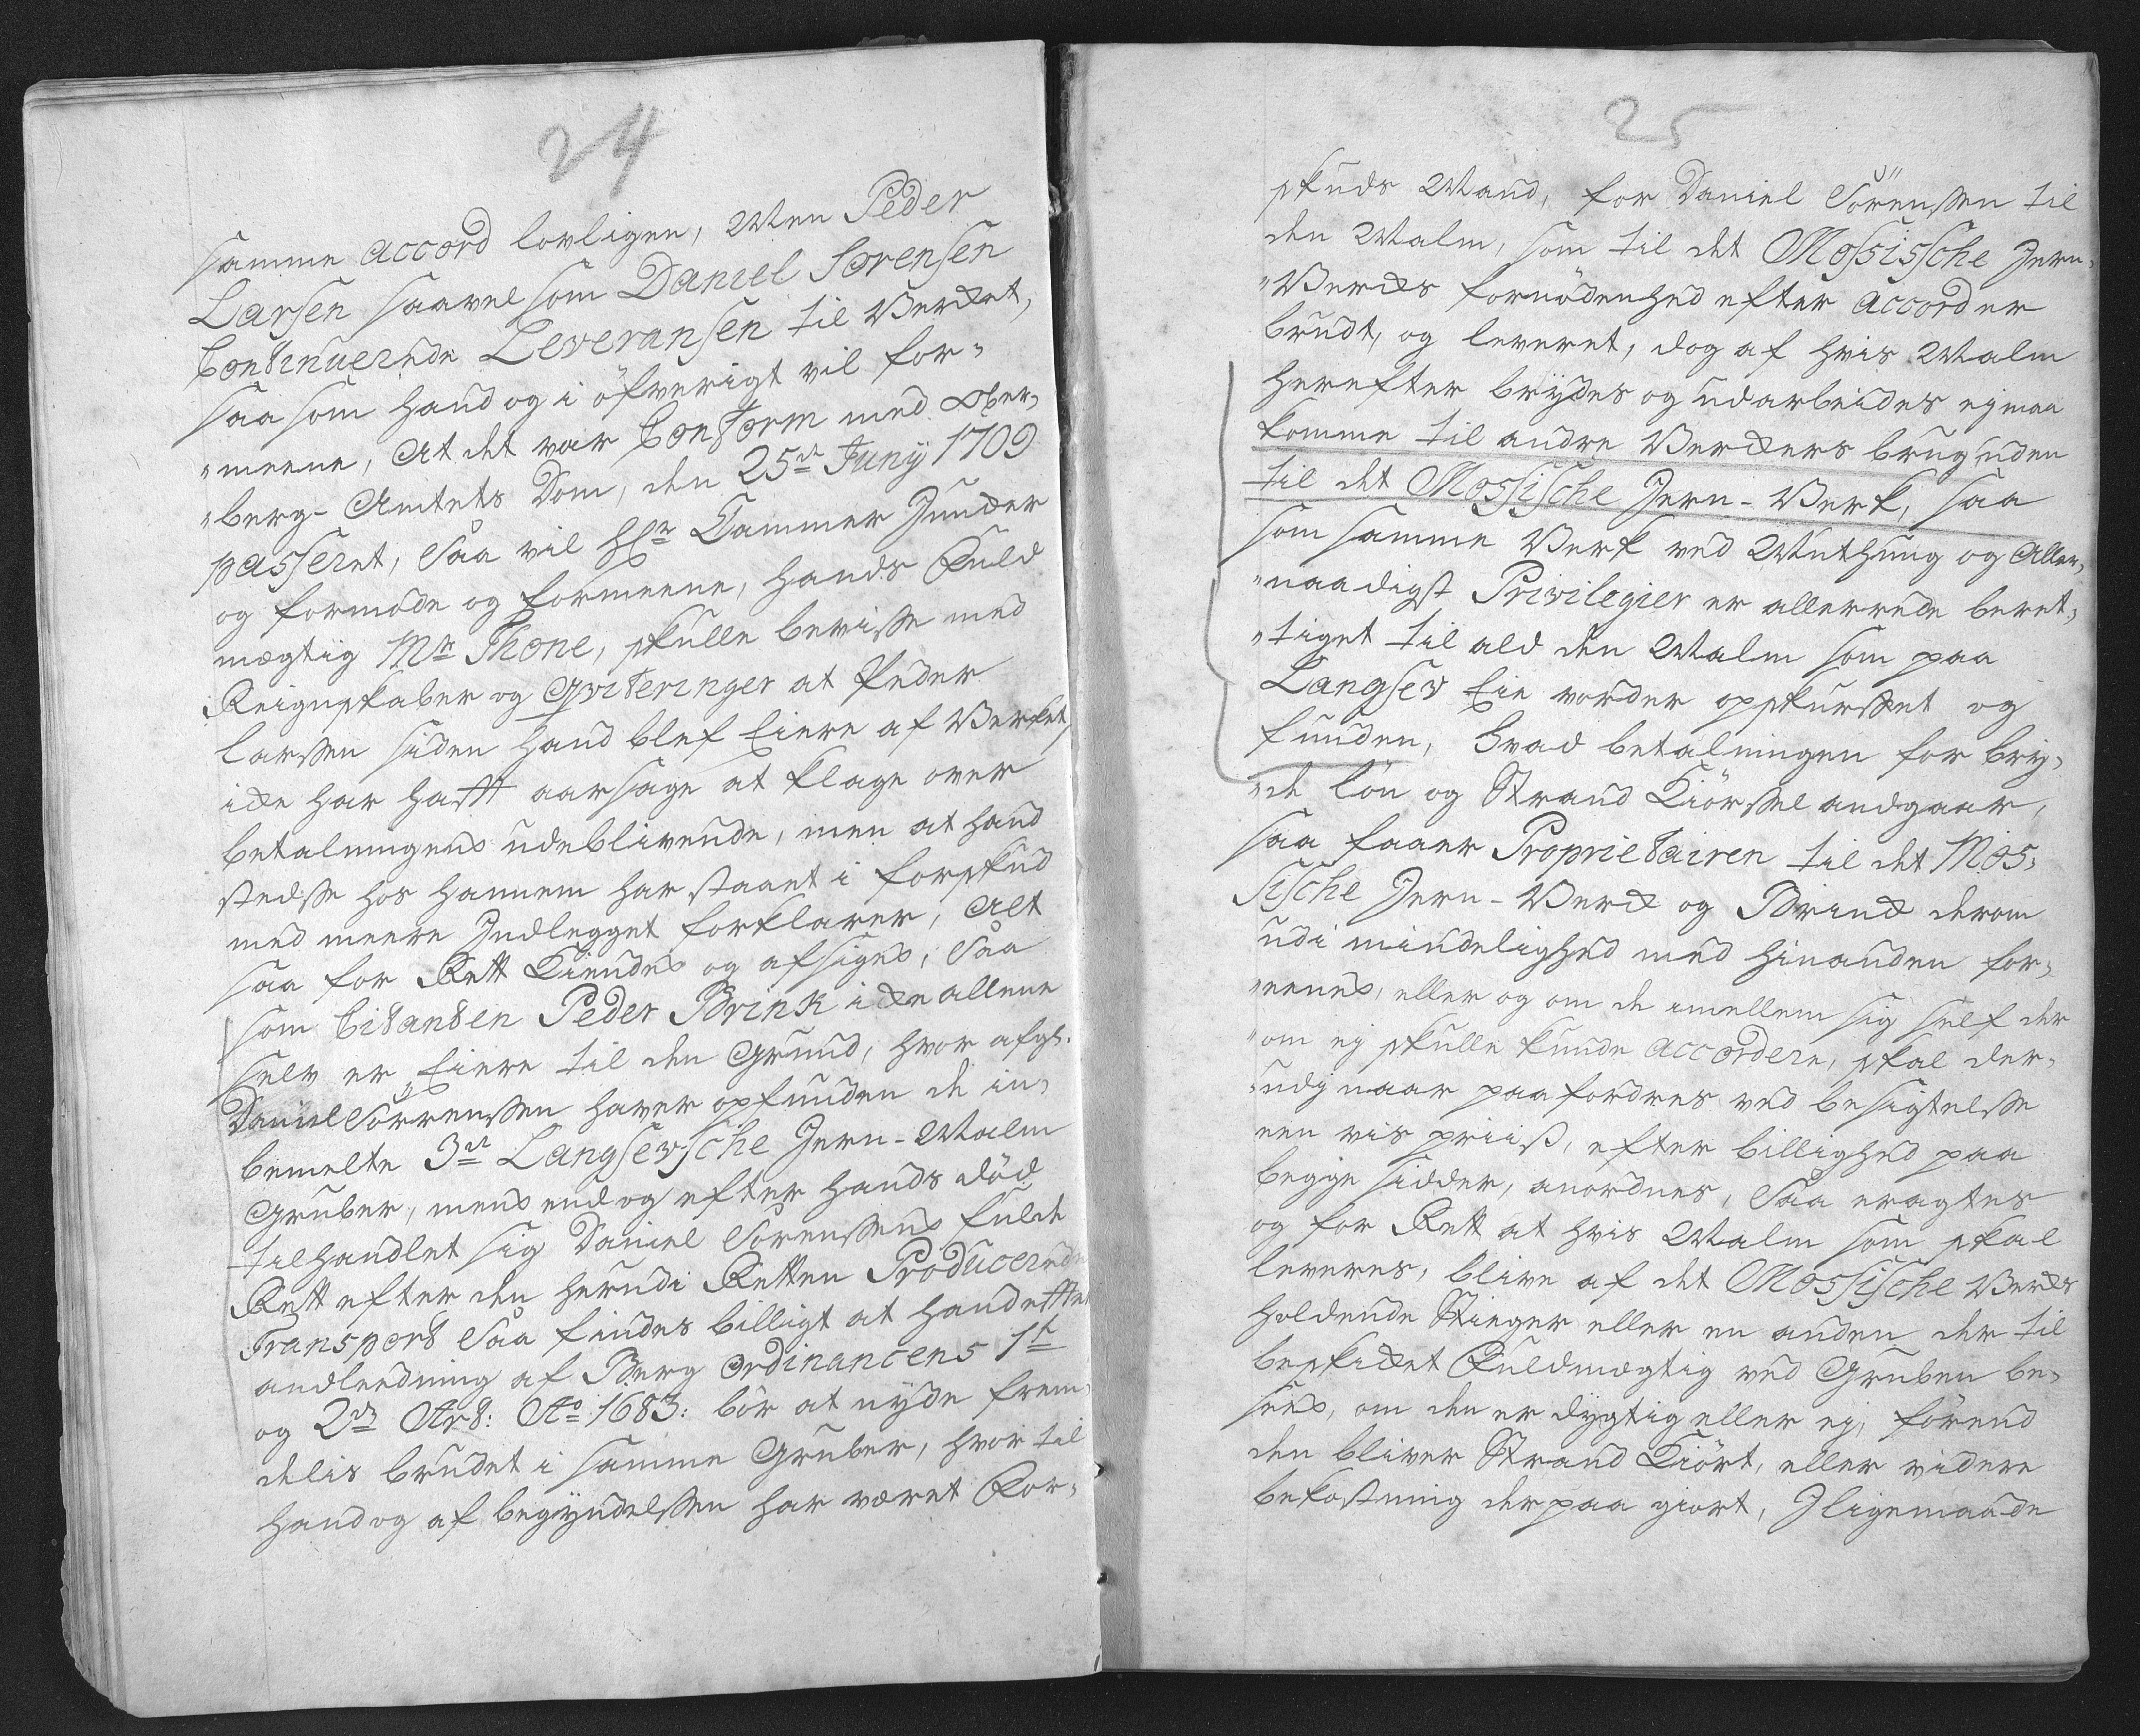 24
samme accord lovligen, Men Peder
Larsen saavelsom Daniel Sorensen
Continuerede Leveransen til Verket,
saa som hand og i öfverigt vil for-
„meene, At det var Conform med Ober-
„berg-Amtets Dom, den 25de Juny 1709
passeret, Saa vil Hr Cammer Juncker
og formode og formeene, hands Fuld
mægtig Mr Thone, skulle bevisse med
Reignskaber og Qviteringer at Peder
Larssen siden hand blef Eiere af Verket,
icke har hafft aarsage at klage over
betalningens udeblivende, men at hand
stedsse hos hannem har staaet i forskud
med meere Indlegget forklarer, Alt
saa for Rett Kiendes og afsiges, Saa
som Citanten Peder Brink icke allene
selv er Eiere til den Grund, hvor afgl.
Daniel Sörrenssen haver opfunden de in-
bemelte 3de Langsevsche Jern-Malm
Gruber, mens endog efter hands död
tilhandlet sig Daniel Sörenssens fulde
Rett efter den herudi Retten Producerede
Transport Saa findes billigt at hand effter
andleedning af Berg Ordinancens 1st
og 2den Art: Ao 1683: bör at nyde frem-
delis brudet i samme Gruber, hvortil
hand og af begyndelssen har været For-
25
skuds Mand, for Daniel Sörenssen til
den Malm, som til det Mossissche Jern-
„Vercks fornödenhed efter accord er
brudt, og leveret, dog af hvis Malm
herefter brydes og udarbeides ej maa
komme til andre Verckers brug uden
til det Mossische Jern-Verk, saa
som samme Verk ved Muthung og Aller-
„naadigst Privilegier er allerrede beret-
„tiget til ald den Malm som paa
Langsev Eie vorder opskurffet og
funden, Hvad betalningen for bry-
„de lön og Strand Kiörssel andgaar,
saa faaer Proprietairen til det Mos-
sische Jern-Verck og Brinck derom
udi mindelighed med hinanden for-
„eenes, eller og om de imellem sig self der
„om ej skulle kunde accordere, skal der-
„udj naar paafordres ved besigtelsse
een vis priiß, efter billighed paa
begge sidder, anordnes, Saa eragtes
og for Rett at hvis Malm som skal
leveres, blive af det Mossische Vercks
holdende Stieger eller en anden der til
beskicket Fuldmægtig ved Gruben be-
sees, om den er dygtig eller ej, förend
den bliver Strand Kiört, eller videre
bekostning der paa giort, Iligemaade